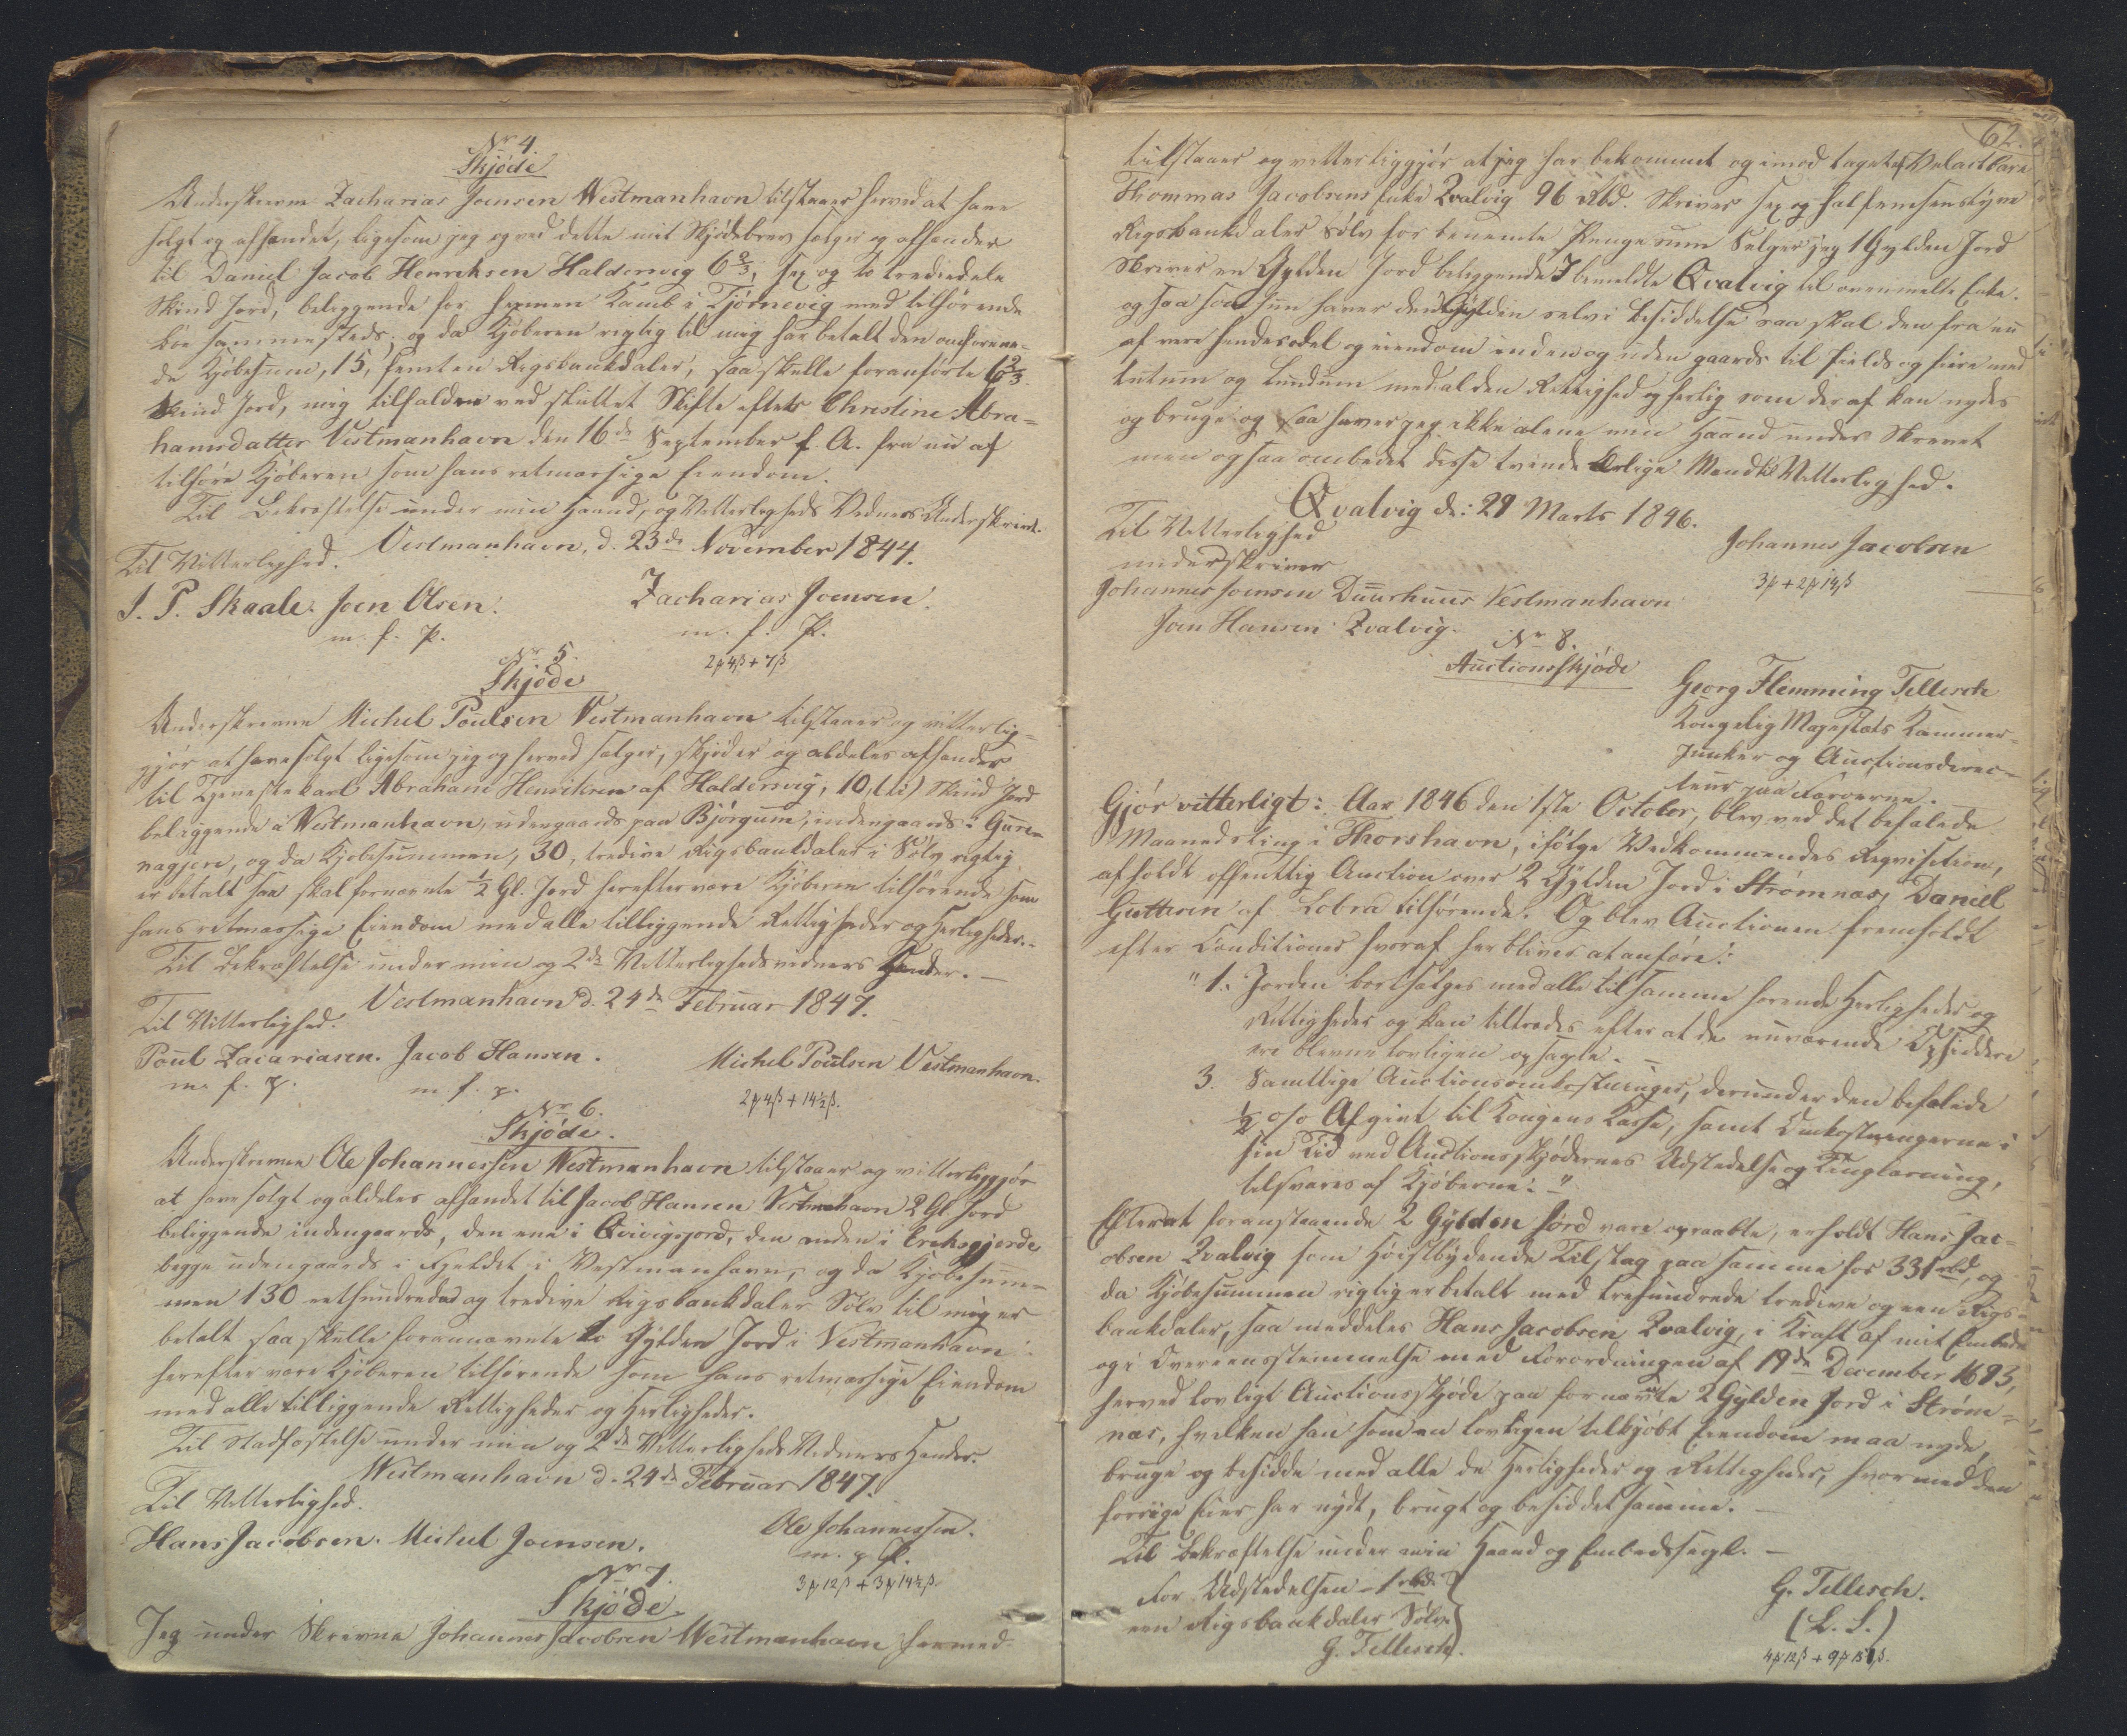 Nr 4.
Skjöde
Underskrevne Zacharias Joensen Westmanhavn tilstaaer herved at have
solgt og afhændet, ligesom jeg og ved dette mit Skjödebrev sælger og afhænder
til Daniel Jacob Henriksen Haldervig 6 2/3, sex og to trediedele
Skind Jord, beliggende for hjemmen i Tjörnevig med tilhörende
böe sammesteds; og da Kjöberen rigtig til mig har betalt den omforene-
de Kjöbesum, 15, femten Rigsbankdaler, saa skulle foranförte 6 2/3
Skind Jord, mig tilfalden ved sluttet Skifte efter Christine Abra-
hamsdatter Vestmanhavn den 16de September f. A. fra nu af
tilhöre Kjöberen som hans retmæssige Eiendom.
Til Bekræftelse under min Haand, og Vitterligheds Vidners Underskrivt.
Vestmanhavn, d. 23de November 1844.
Til Vitterlighed.
J. P. Skaale. Joen Olsen. Zacharias Joensen.
m. f. P. m. f. P.
2 4ß + 7ß
Nr 5.
Skjöde
Underskrevne Michel Poulsen Vestmanhavn tilstaaer og vitterlig-
gjör at have solgt ligesom jeg og herved sælger, skjöder og aldeles afhænder
til Tjenestekarl Abraham Henriksen af Haldervig, 10, (ti) Skind Jord
beliggende i Westmanhavn, udengaards paa Björgum, indengaards i
og da Kjöbesummen, 30, tredive Rigsbankdaler i Sölv rigtig
er betalt saa skal fornævnte 1/2 Gl. Jord herefter være Kjöberen tilhörende som
hans retmæssige Eiendom med alle tilliggende Rettigheder og Herligheder.-
Til Bekræftelse under min og 2de Vitterlighedsvidners Hænder.-
Vestmanhavn d. 24de Februar 1847.
Til Vitterlighed.
Poul Zacariasen. Jacob Hansen. Michel Poulsen Vestmanhavn.
m. f. P. m. f. p.
2 4ß + 14½ß.
Nr 6.
Skjöde.
Underskrevne Ole Johannessen Westmanhavn tilstaaer og vitterliggjör
at have solgt og aldeles afhændet til Jacob Hansen Vestmahavn 2 Gl. Jord
beliggende indengaards, den ene i Qvivigsjord, den anden i Eriksgjerde
begge udengaards i Fjeldet i Vestmanhavn, og da Kjöbesum-
men 130 eethundrede og tredive Rigsbankdaler Sölv til mig er
betalt saa skulle forannævnte to Gylden Jord i Vestmanhavn
herefter være Kjöberen tilhörende som hans retmæssige Eiendom
med alle tilliggende Rettigheder og Herligheder.
Til Stadfæstelse under min og 2de Vitterligheds Vidners Hænder.
Westmanhavn d. 24de Februar 1847.
Til Vitterlighed.
Hans Jacobsen. Michel Joensen. Ole Johannessen.
m. p. P.
3 12ß + 3 14½ß.
Nr 7.
Skjöde
Jeg under Skrevne Johannes Jacobsen Westmanhavn hermed
62.
tilstaaer og vitterliggjör at jeg har bekommet og imod taget af Velactbare
Thommas Jacobsens Enke Qvalvig 96 Rbd. Skriver sex og halfemsenstyve
Rigsbankdaler Sölv for benemte Penge sum Selger jeg 1 Gylden Jord
Skriver en Gylden Jord beliggende I bemeldte Qvalvig til ovenmelte Enke.
og saa som hun haver den Gylden selv i besiddelse saa skal den fra nu
af vere hendes odel og eiendom inden og uden gaards til fields og fiære med
lutum og lundum med al den Rettighed og herlig som deraf kan nydes
og bruge og saa haver jeg ikke alene min Haand under Skrevet
men ogsaa ombedet disse tvende Ærlige Mend til Vitterlighed.
Qvalvig d: 29 Marts 1846.
Til Vitterlighed
underskriver
Johannes Jacobsen
3 + 2 14ß
Johannes Joensen Duurhuus Vestmanhavn
Joen Hansen Qvalvig.
Nr 8.
Auctionsskjöde
Georg Flemming Tillisch
Kongelig Majestæts Kammer-
Junker og Auctionsdirec-
teur paa Færöerne.
Gjör vitterligt: Aar 1846 den 1ste October, blev ved det befalede
Maanedsting i Thorshavn, ifölge Vedkommendes Reqvisition,
afholdt offentlig Auction over 2 Gylden Jord i Strömnæs, Daniel
Guttesen af Lobra tilhörende. Og blev Auctionen fremholdt
efter Conditioner hvoraf her bliver at anföre:
"1. Jorden bortsælges med alle til samme hörende Herligheder og
Rettigheder og kan tiltrædes efter at de nuværende Opsiddere
ere blevne lovligen opsagte.-
3. Samtlige Auctionsomkostninger, derunder den befalede
½ o/o Afgivt til Kongens Kasse, samt Omkostningerne i
sin Tid ved Auctionsskjödernes Udstedelse og Tinglæsning,
tilsvares af Kjöberne.-"
Efterat foranstaaende 2 Gylden Jord vare opraabte, erholdt Hans Jac-
obsen Qvalvig som höistbydende Tilslag paa samme for 331 rbd, og
da Kjöbesummen rigtig er betalt med trehundrede tredive og een Rigs-
bankdaler, saa meddeles Hans Jacobsen Qvalvig, i Kraft af mit Embede
og i Overeensstemmelse med Forordningen af 19de December 1693,
herved lovligt Auctionsskjöde paa fornævnte 2 Gylden Jord i Ström-
næs, hvilken han som en lovligen tilkjöbt Eiendom maa nyde,
bruge og besidde med alle de Herligheder og Rettigheder, hvormed den
forrige Eier har nydt, brugt og besiddet samme.-
Til Bekræftelse under min Haand og Embedssegl.-
For Udstedelsen - 1 rbd.
een Rigsbankdaler Sölv.
G. Tillisch.
G. Tillisch.
(L. S.)
4 12ß + 9 15½ß.